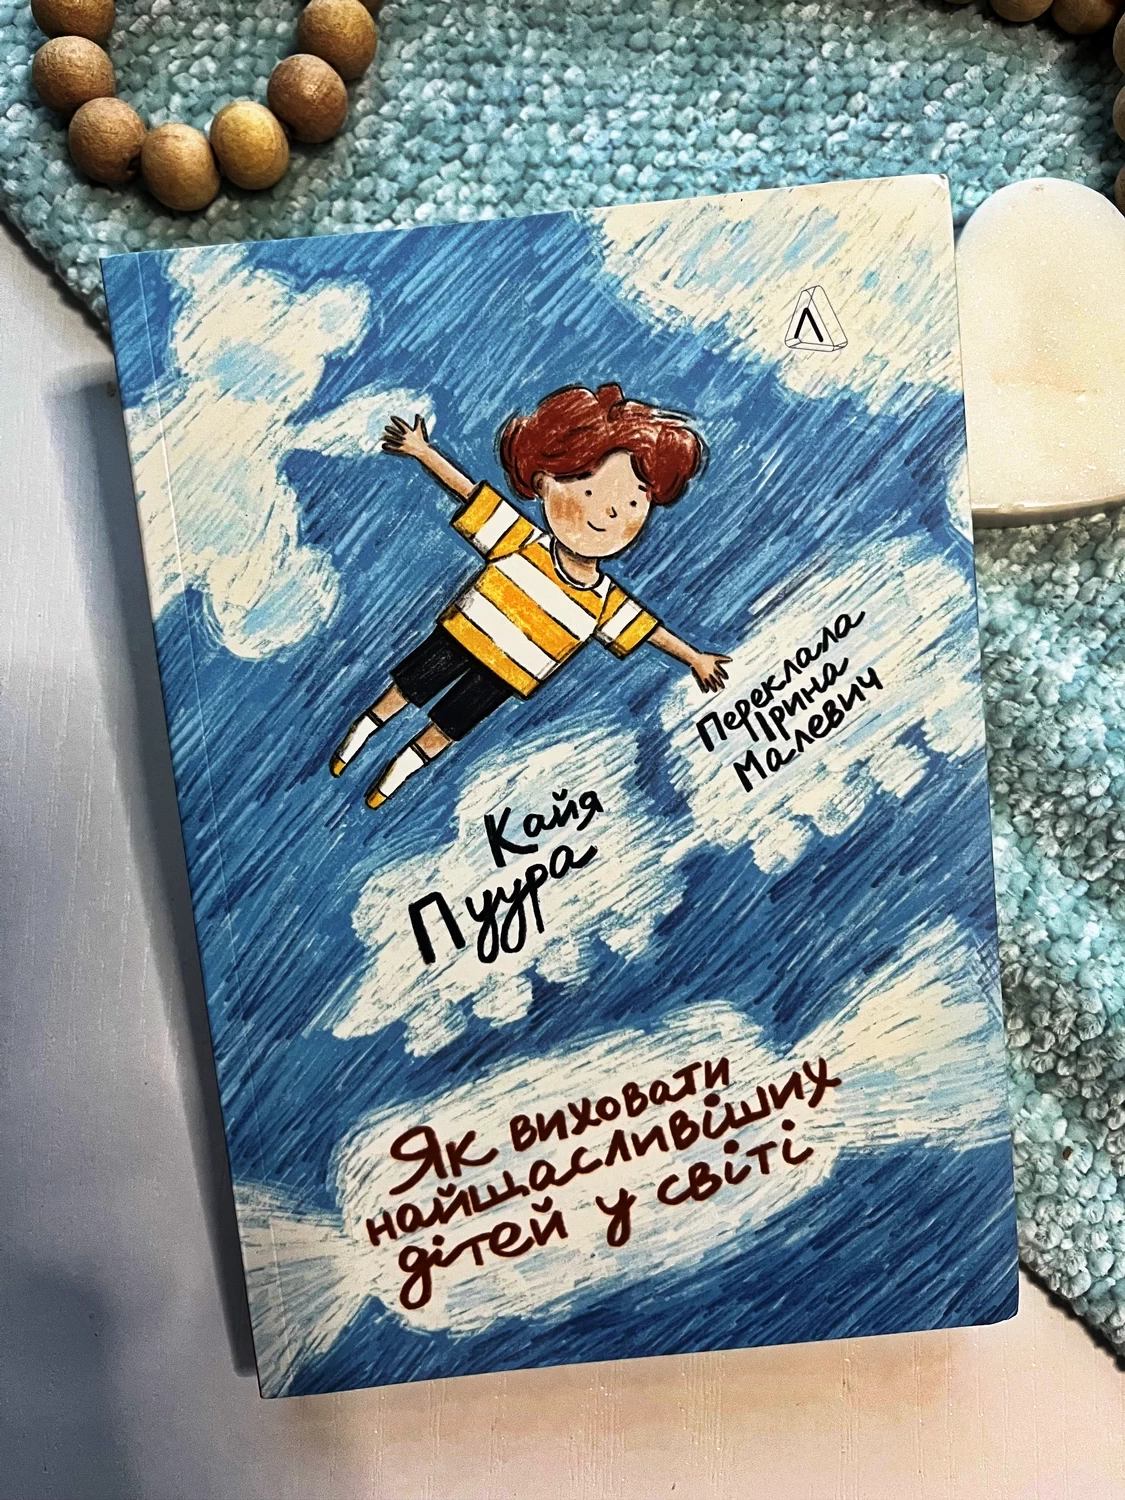 Л
Переклала
Ірина
Малевич
Кайя
Пуура
Як виховати
найщасливіших
дітей у світі